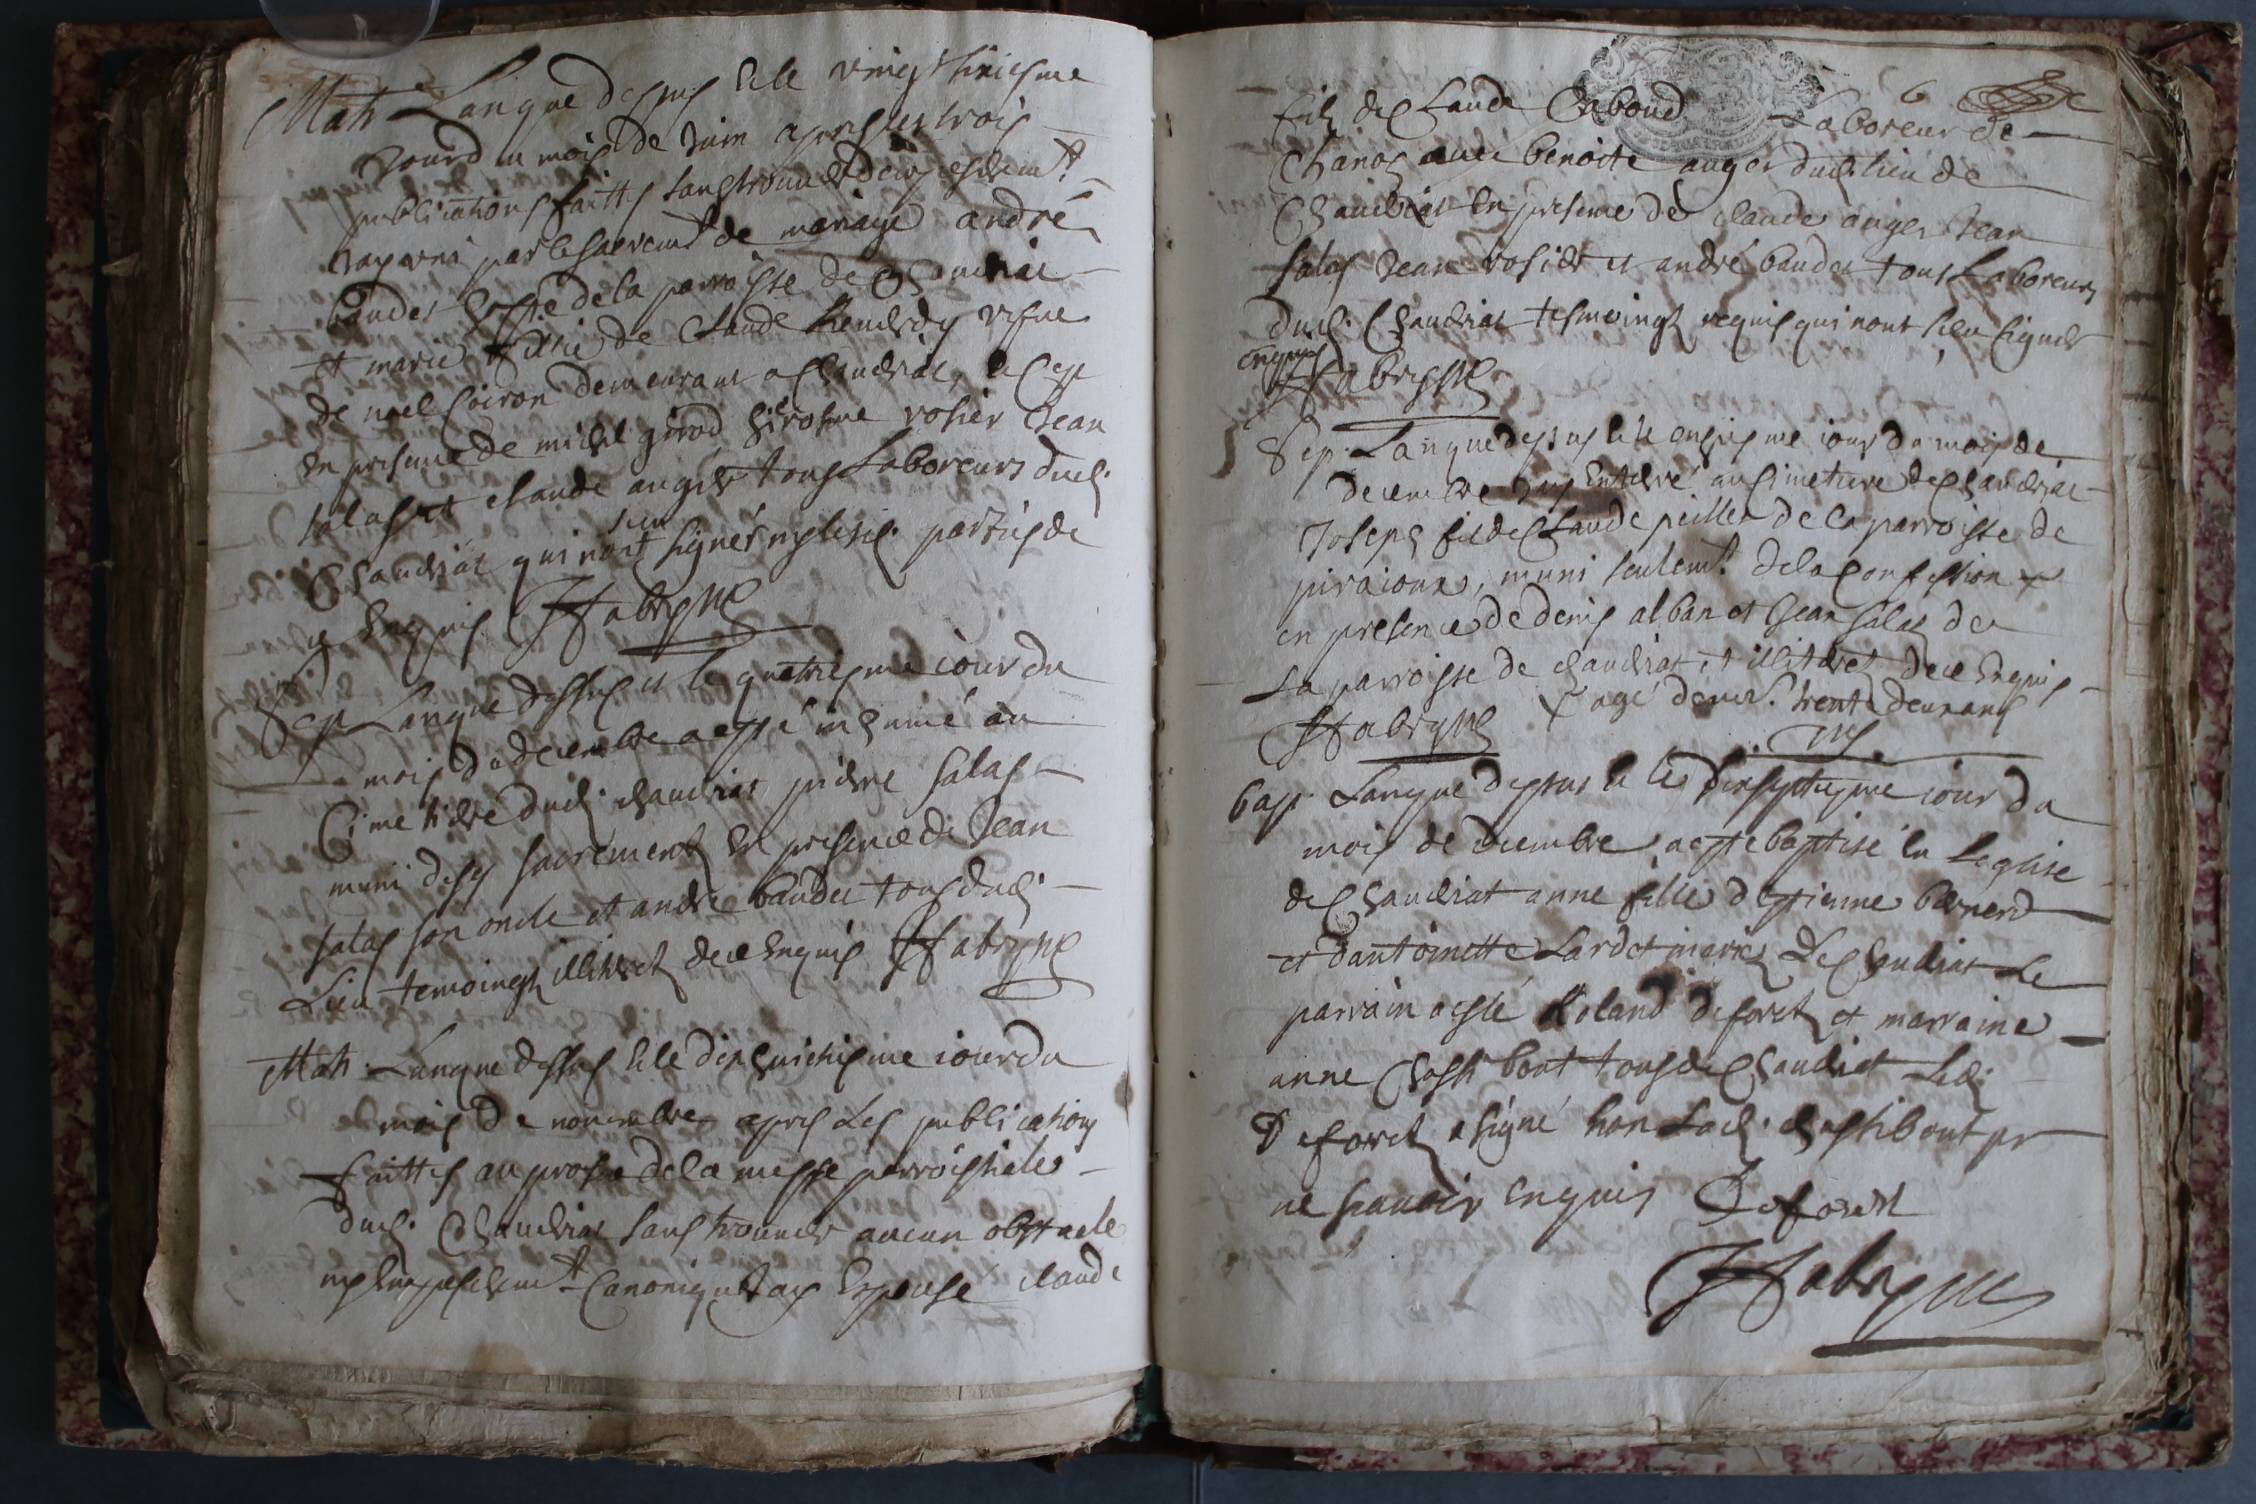 Mah Lanque dessus & le vingt sixiesme
jour du mois de Juin apres les trois
publications faittes sans trouver d'empeschemt
Jay uni par le sacremt de mariage andré
baudet de la parroisse de Chaudriat
et marie fille de Claude vefue
de noel Coiron demeurant a Chaudriat, le
en presence de michel girod hierosme rosier Jean
salas et claude auger tous Laboreurs dud.
Chaudriat qui nont sceu signer ny lesd. parties de
ce Enquis FFabry
Sep Lanque dessus et le quatriesme iour du
mois de decembre a esté inhumé au
Cimetiere dud. chaudriat pierre salas
muni de ses sacrements en presence de Jean
salas son oncle et andre baudet tous dud.
Lieu temoingts illiteres de ce Enquis FFabry
Mah. Lanque dessus & le dix huictiesme iour du
mois de novembre apres Les publications
faittes au prosne de la messe parroissiale
dud. Chaudriat sans trouver aucun obstacle
ny Empeschemt Canonique Jay Espousé claude
6
fils de Claude Caboud Laboreur de
Chanos avec benoite auger dud. lieu de
Chaudriat En presence de claude auger Jean
salas Jean rosier et andré baudet tous Laboreurs
dud. Chaudriat tesmoingts requis qui nont sceu signer
enquis FFabry
Sep. Lanque dessus & le onziesme iour du mois de
decembre Jay Enterré au Cimetiere de Chaudriat
Joseph fils de Claude peillet de la parroisse de
piraioux, muni seulemt de la Confession
en presence de denis alban et Jean salas de
La parroisse de chaudriat et illiteres de ce Enquis
FFabry agé denvi. trente deux ans
bap. Lanque dessus & le dixseptiesme iour du
mois de decembre a esté baptisé en Leglise
de Chaudriat anne fille d'estienne bernerd
et dantoinette Lardet mariés de Chaudriat Le
parrain a esté Roland deforest et marraine
anne Chastibout tous de Chaudriat Led.
Deforest a signé non Lad. chastibout pr
ne scavoir enquis Deforest
FFabry